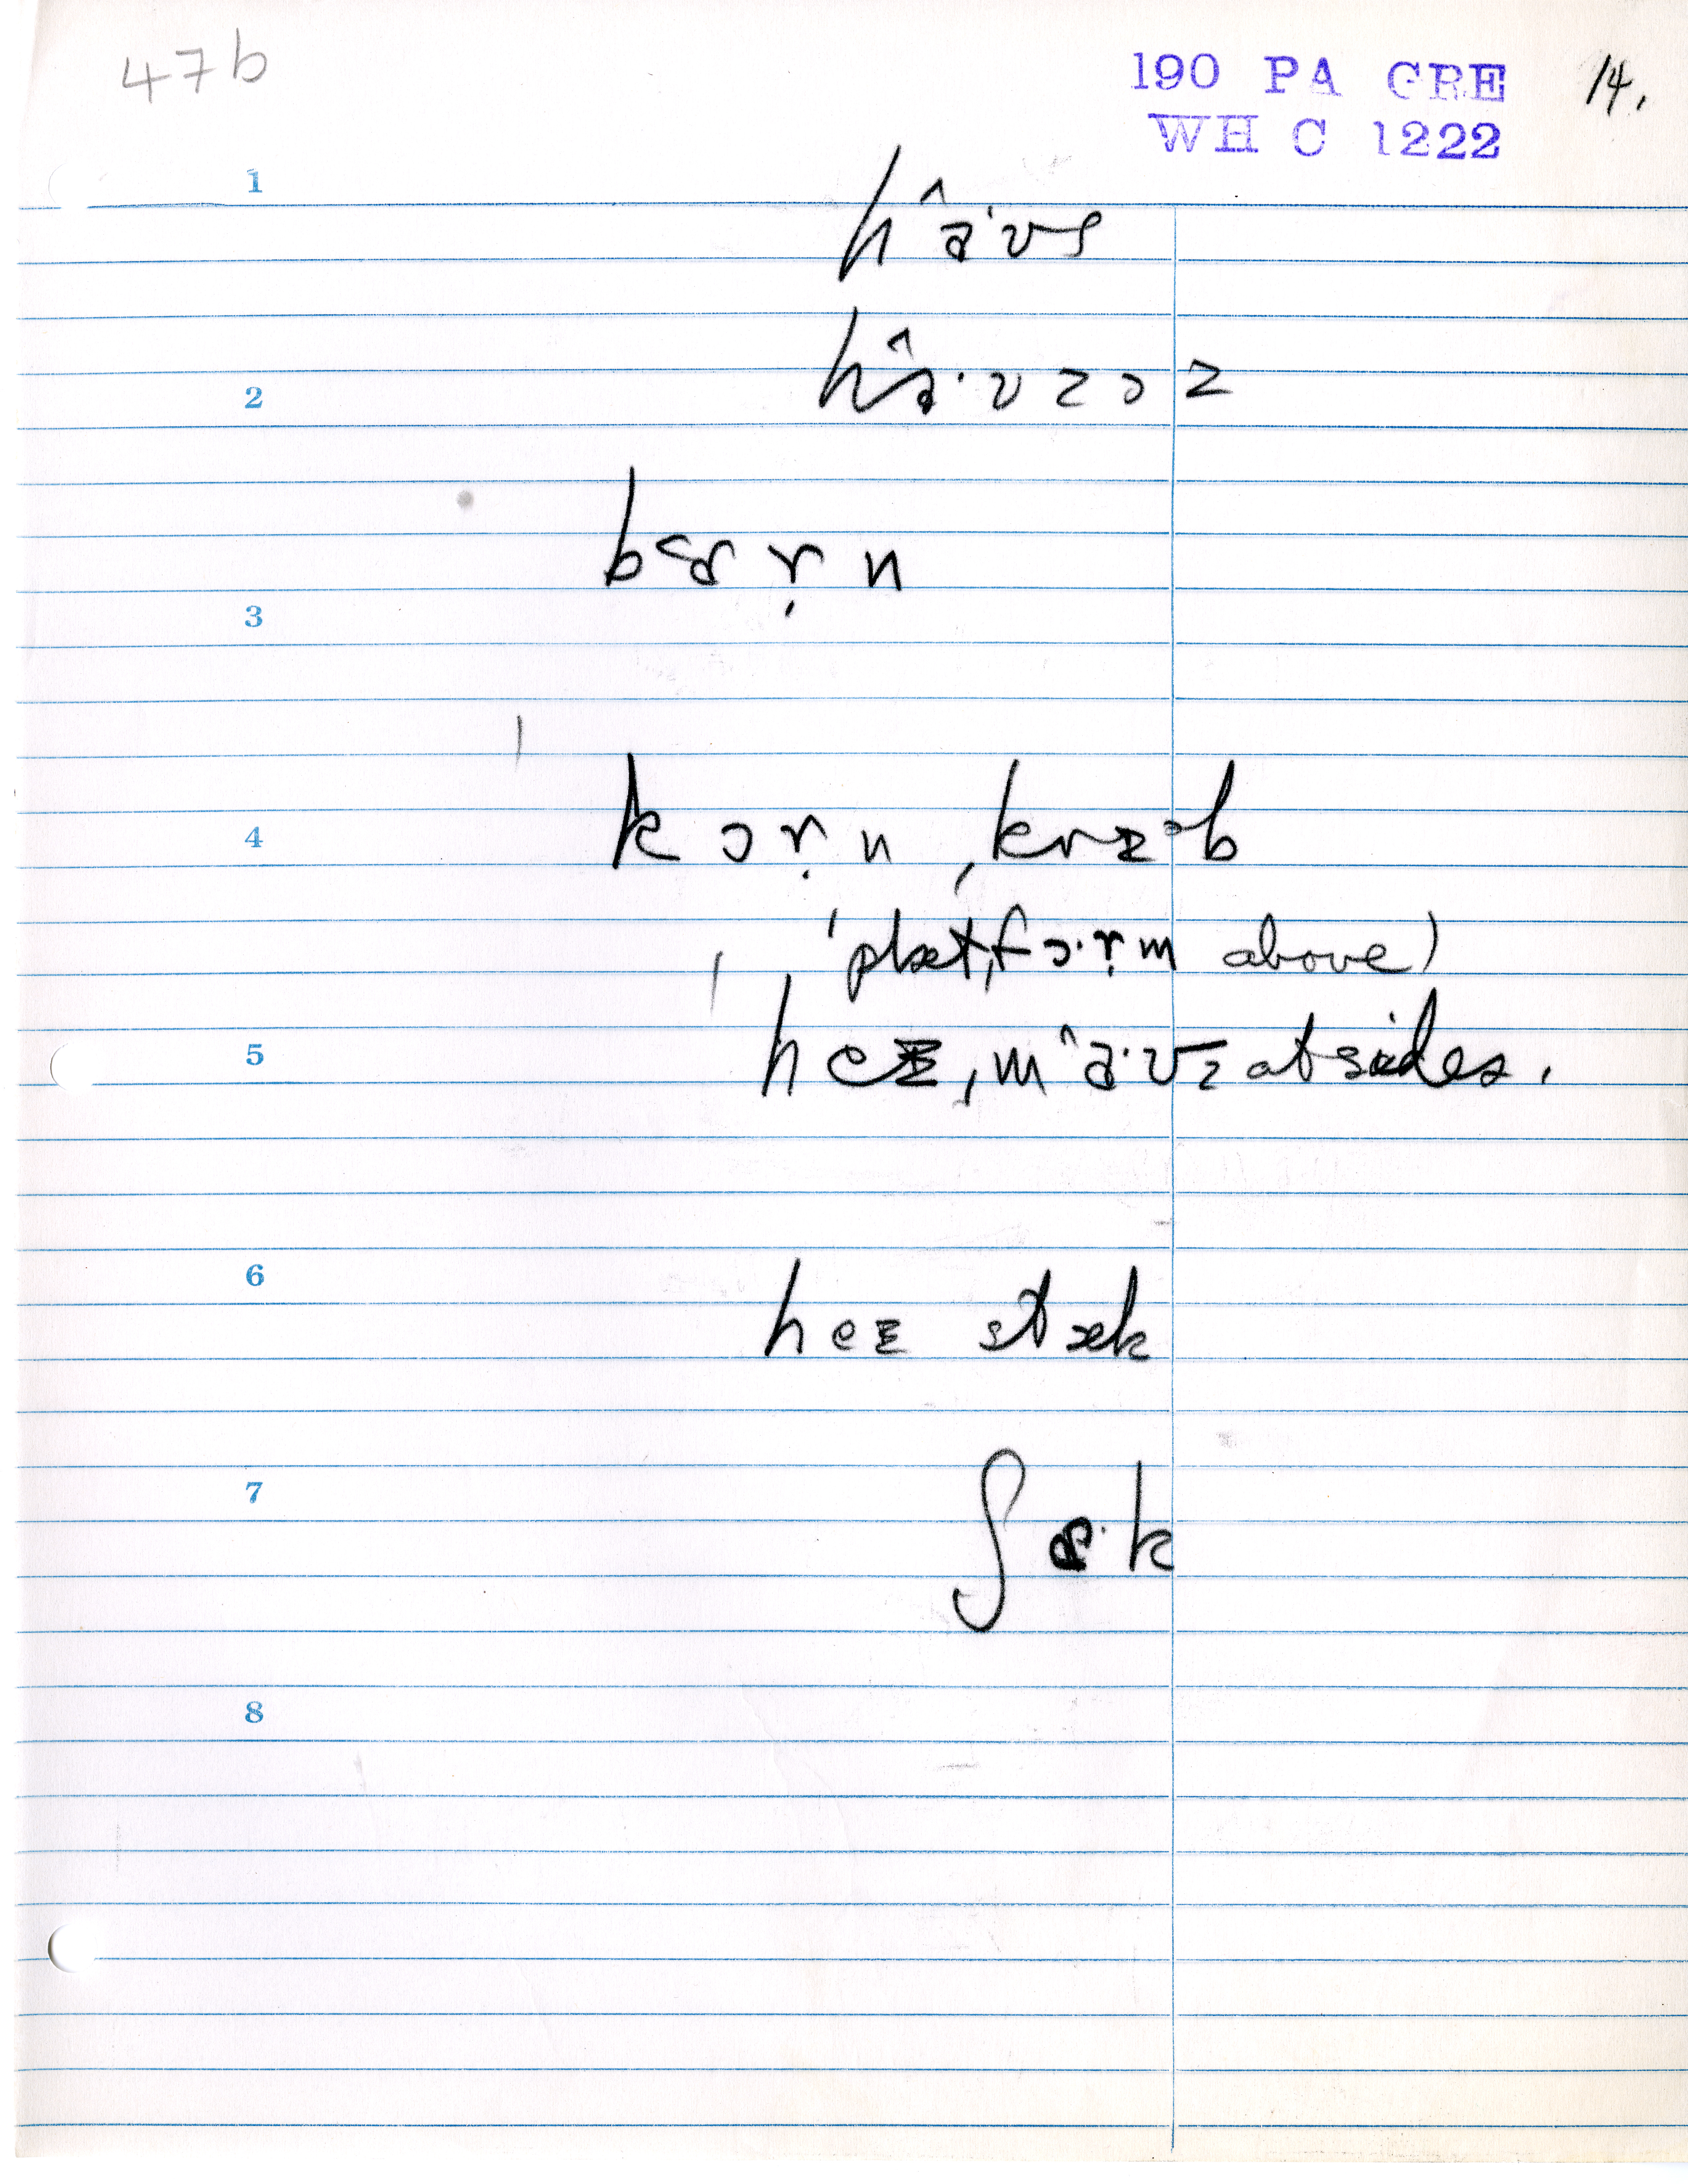 47b
190 PA GRE 14.
WH C 1222
1
h^a·ʊs
2
h^a·ʊzəz
b<ɒr̩n
3
4
kɔr̩n ˌkrɪ>b
(ˈplætˌfɔ·r̩m above)
5
heɪˌm^a·ʊz at sides.
6
heɪ stæk
7
ʃæ·k
8